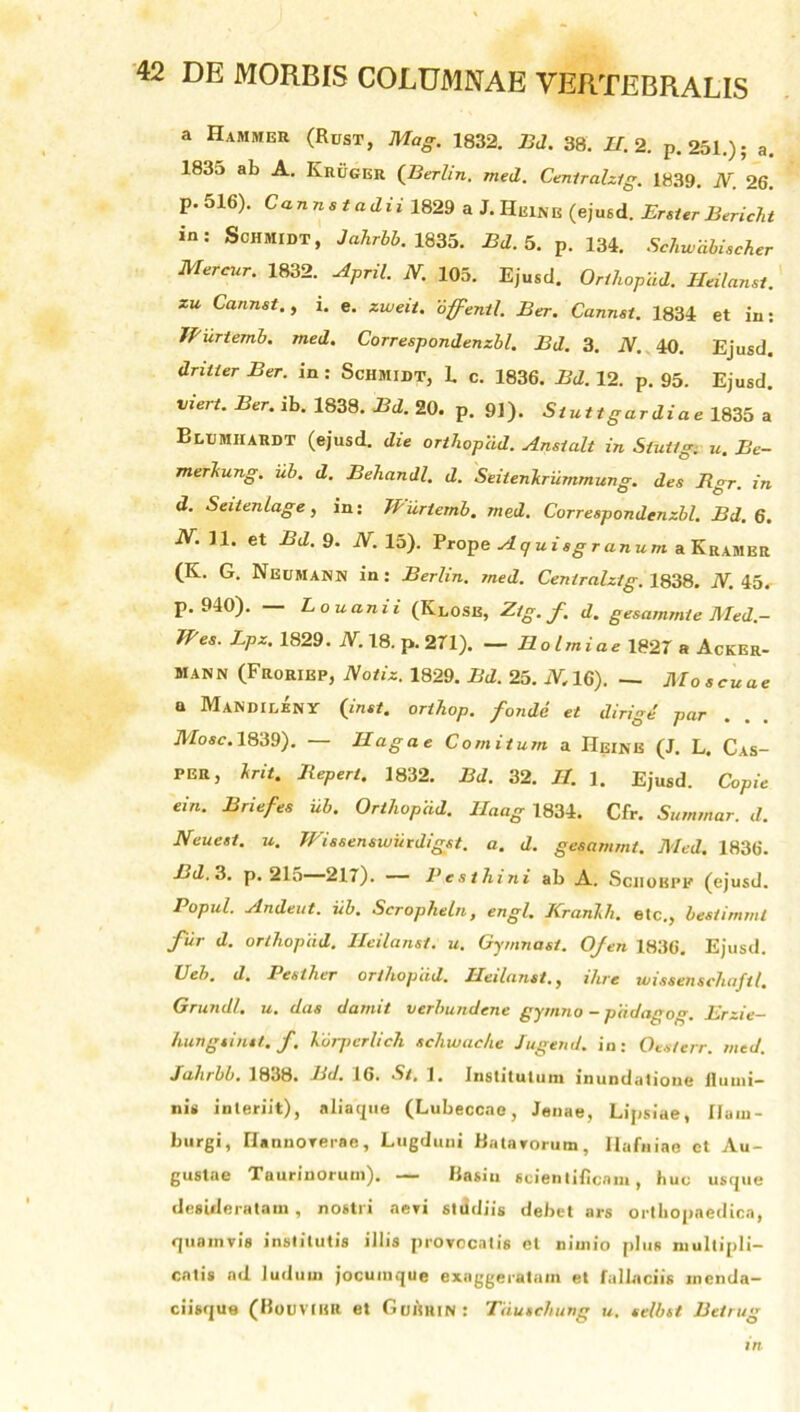 42 DE MORBIS COLUMNAE VERTEBRALIS
a HAMMER (RUST, Mag. 1832. Bd. 38. II. 2. p. 251.); a.
1835 ab A. KRÜGER (Berlin. med. Centralztg. 1839. N. 26.
p. 516). Cannstadii 1829 a J. HEINE (ejusd. Erster Bericht
in: SCHMIDT, Jahrbb. 1835. Bd. 5. p. 134. Schwäbischer
Mercur. 1832. April. N. 105. Ejusd. Orthopäd. Heilanst.
zu Cannst., i. e. zweit. öffentl. Ber. Cannst. 1834 et in:
Würtemb. med. Correspondenzbl. Bd. 3. N. 40. Ejusd.
dritter Ber. in: SCHMIDT, l. c. 1836. Bd. 12. p. 95. Ejusd.
viert. Ber. ib. 1838. Bd. 20. p. 91). Stuttgardiae 1835 a
BLUMHARDT (ejusd. die orthopäd. Anstalt in Stuttg. u. Be-
merkung. üb. d. Behandl. d. Seitenkrümmung. des Rgr. in
d. Seitenlage, in: Würtemb. med. Correspondenzbl. Bd. 6.
N. 11. et Bd. 9. N. 15). Prope Aquisgranum a KRAMER
(K. G. NEUMANN in: Berlin. med. Centralztg. 1838. N. 45.
p. 940). — Louanii (KLOSE, Ztg. f. d. gesammte Med.-
Wes. Lpz. 1829. N. 18. p. 271). — Holmiae 1827 a ACKER-
MANN (FRORIEP, Notiz. 1829. Bd. 25. N. 16). — Moscuae
a MANDILÉNY (inst. orthop. fondé et dirigé par . . .
Mosc. 1839). — Hagae Comitum a HEINE (J. L. CAS-
PER, krit. Repert. 1832. Bd. 32. H. 1. Ejusd. Copie
ein. Briefes üb. Orthopäd. Haag 1834. Cfr. Summar. d.
Neuest. u. Wissenswürdigst. a. d. gesammt. Med. 1836.
Bd. 3. p. 215—217). — Pesthini ab A. SCHOEPF (ejusd.
Popul. Andeut. üb. Scropheln, engl. Krankh. etc., bestimmt
für d. orthopäd. Heilanst. u. Gymnast. Ofen 1836. Ejusd.
Ueb. d. Pesther orthopäd. Heilanst., ihre wissenschaftl.
Grundl. u. das damit verbundene gymno-pädagog. Erzie-
hungsinst. f. körperlich schwache Jugend. in: Oesterr. med.
Jahrbb. 1838. Bd. 16. St. 1. Institutum inundatione flumi-
nis interiit), aliaque (Lubeccae, Jenae, Lipsiae, Ham-
burgi, Hannoverae, Lugduni Batavorum, Hafniae et Au-
gustae Taurinorum). — Basin scientificam, huc usque
desideratam, nostri aevi studiis debet ars orthopaedica,
quamvis institutis illis provocatis et nimio plus multipli-
catis ad ludum jocumque exaggeratam et fallaciis menda-
ciisque (BOUVIER et GUÉRIN: Täuschung u. selbst Betrug
in